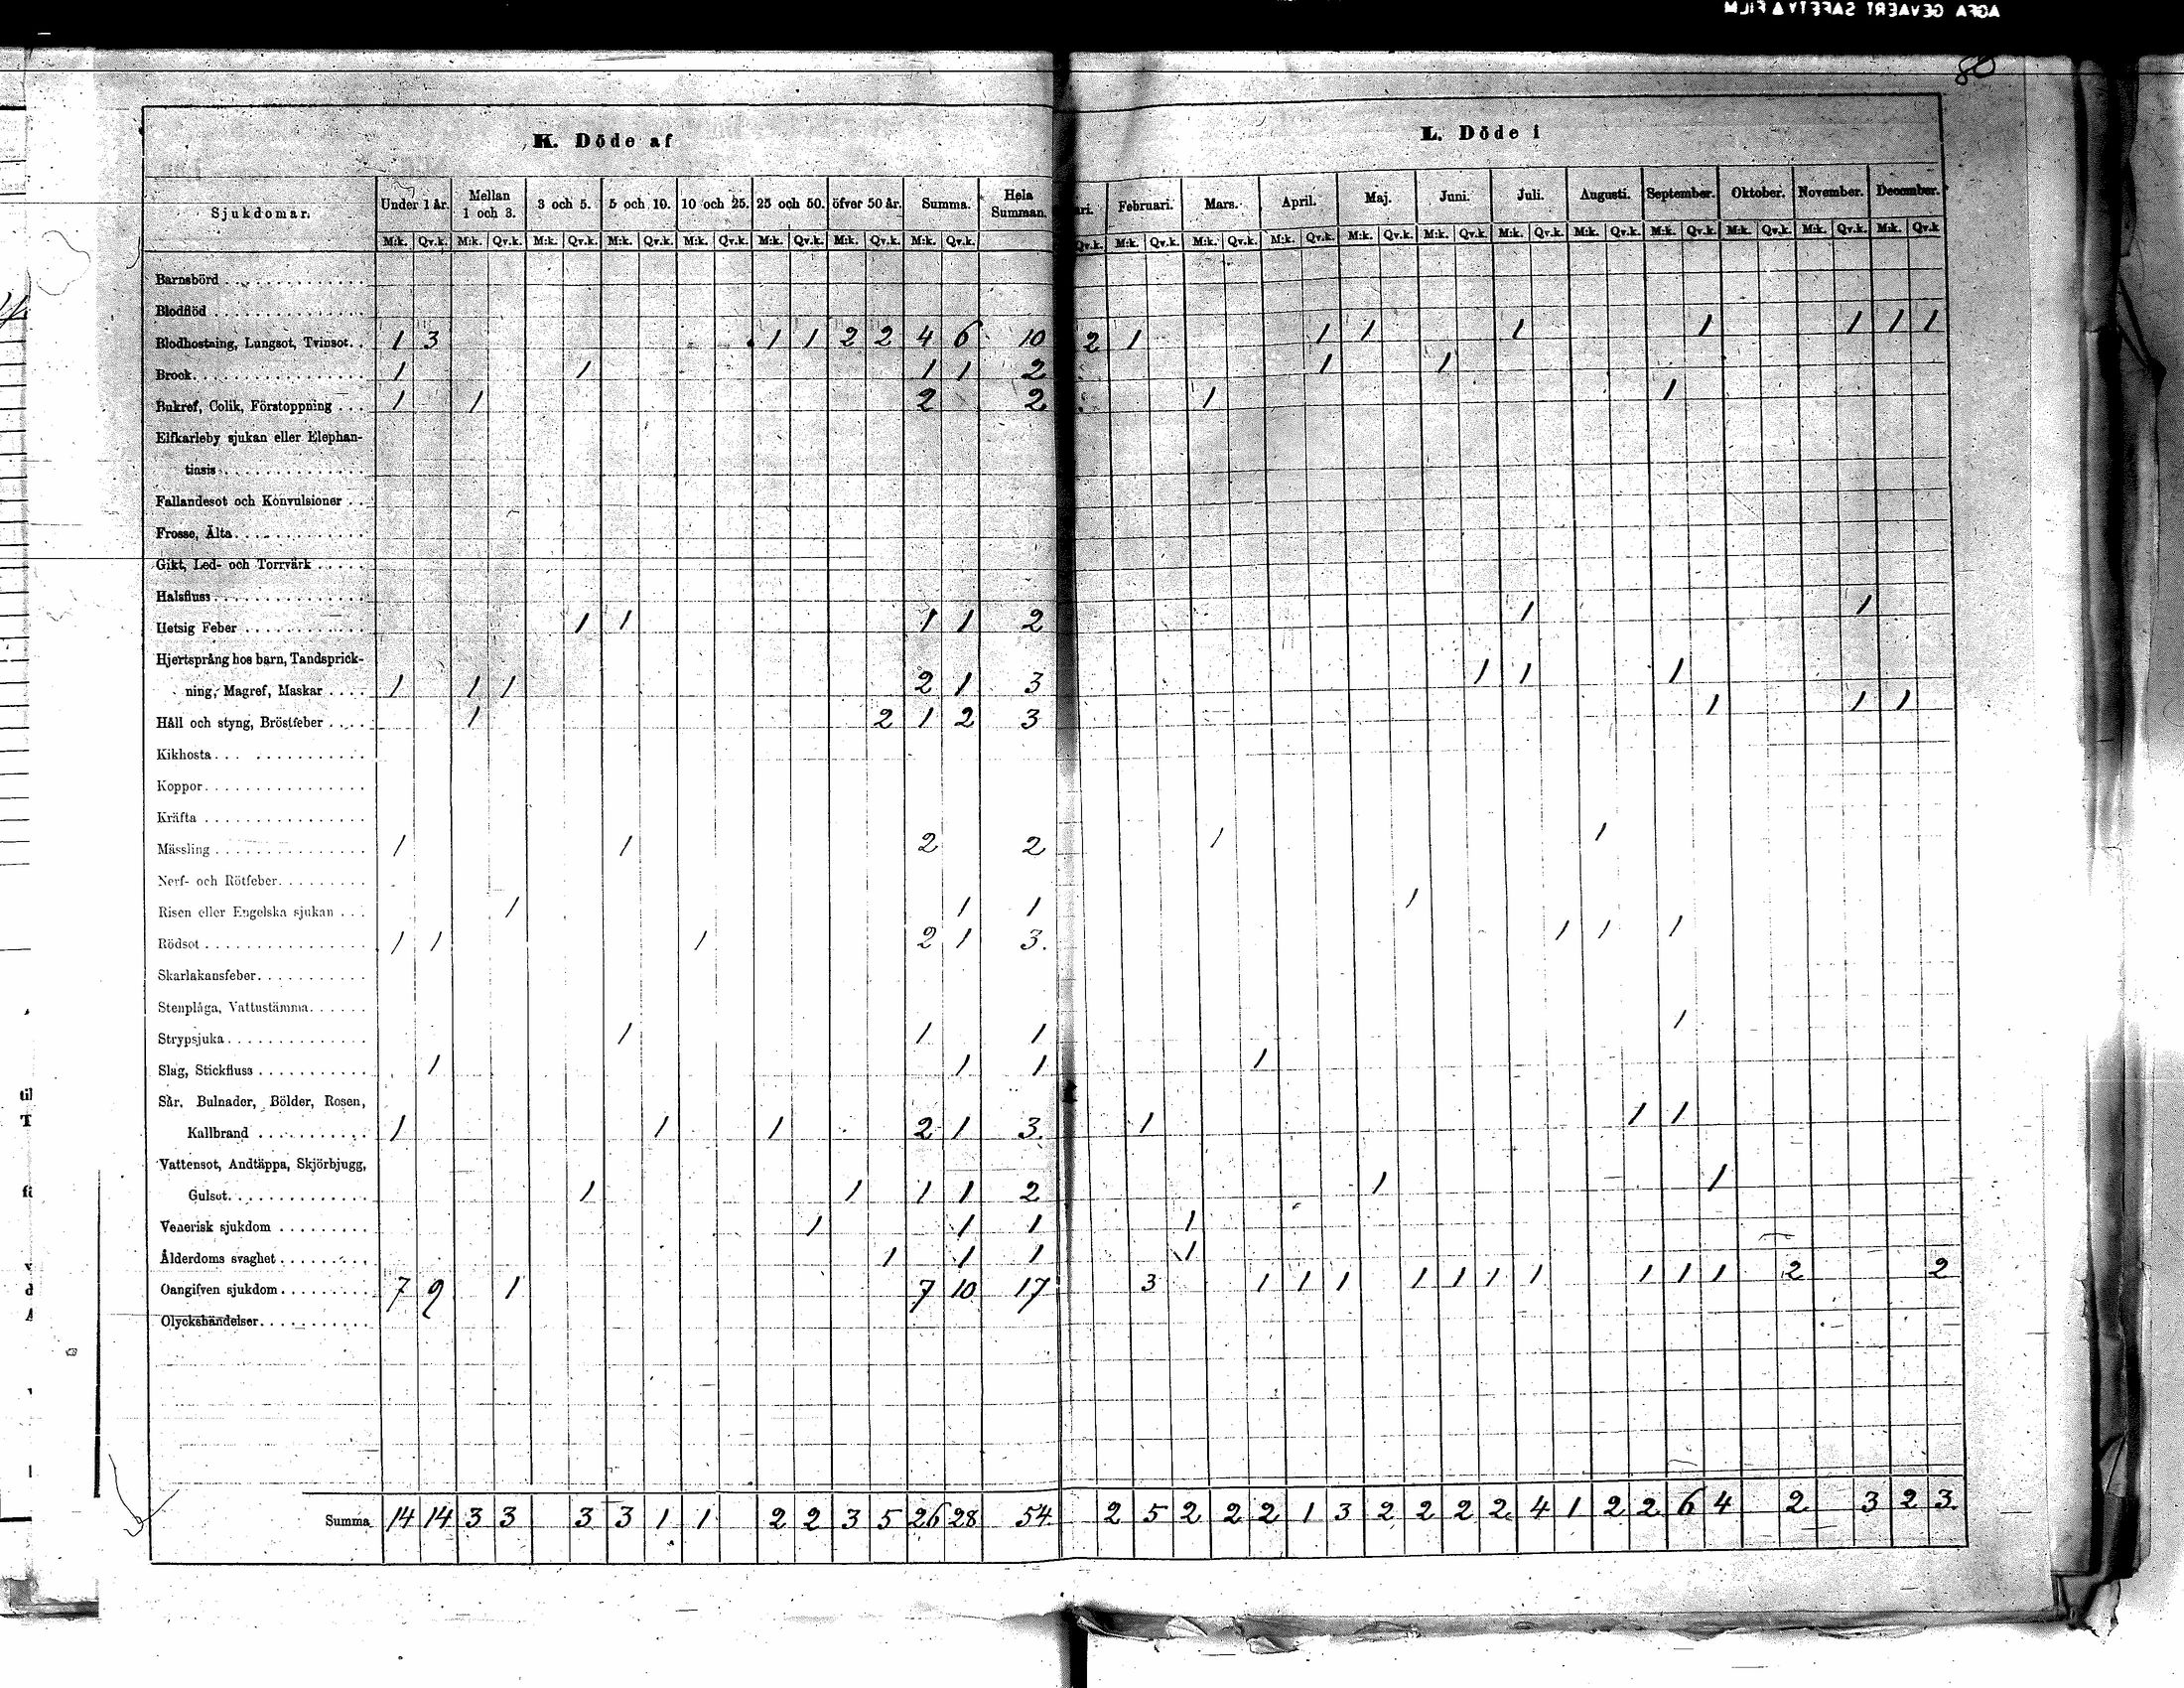 AGFA GEVAERT SAFETY FILM
80
K. Döde af
L. Döde i
Sjukdomar. Under 1 år. Mellan 1 och 3. 3 och 5. 5 och 10. 10 och 25. 25 och 50. öfver 50 år. Summa. Hela Summan. ari. Februari. Mars. April. Maj. Juni. Juli. Augusti. September. Oktober. November. December.
M:k. Qv.k. M:k. Qv.k. M:k. Qv.k. M:k. Qv.k. M:k. Qv.k. M:k. Qv.k. M:k. Qv.k. M:k. Qv.k. Qv.k. M:k. Qv.k. M:k. Qv.k. M:k. Qv.k. M:k. Qv.k. M:k. Qv.k. M:k. Qv.k. M:k. Qv.k. M:k. Qv.k. M:k. Qv.k. M:k. Qv.k. M:k. Qv.k
Barnsbörd
Blodflöd
Blodhostning, Lungsot, Tvinsot. 1 3 1 1 2 2 4 6 10 2 1 1 1 1 1 1 1 1
Brock 1 1 1 1 2 1 1
Bukref, Colik, Förstoppning 1 1 2 2 1 1
Elfkarleby sjukan eller Elephan-
tiasis
Fallandesot och Konvulsioner
Frossa, Älta
Gikt, Led- och Torrvärk
Halsfluss
Hetsig Feber 1 1 1 1 2 1 1
Hjertsprång hos barn, Tandsprick-
ning, Magref, Maskar 1 1 1 2 1 3 1 1 1
Håll och styng, Bröstfeber 1 2 1 2 3 1 1 1
Kikhosta
Koppor
Kräfta
Mässling 1 1 2 2 1 1
Nerf- och Rötfeber
Risen eller Engelska sjukan 1 1 1 1
Rödsot 1 1 1 2 1 3. 1 1 1
Skarlakansfeber
Stenplåga, Vattustämma
Strypsjuka 1 1 1 1
Slag, Stickfluss 1 1 1 1
Sår, Bulnader, Bölder, Rosen,
Kallbrand 1 1 1 2 1 3. 1 1 1
Vattensot, Andtäppa, Skjörbjugg,
Gulsot 1 1 1 1 2 1 1
Venerisk sjukdom 1 1 1 1
Ålderdoms svaghet 1 1 1 1
Oangifven sjukdom 7 9 1 7 10 17 3 1 1 1 1 1 1 1 1 1 1 2 2
Olyckshändelser
Summa 14 14 3 3 3 3 1 1 2 2 3 5 26 28 54 2 5 2 2 2 1 3 2 2 2 2 4 1 2 2 6 4 2 3 2 3.